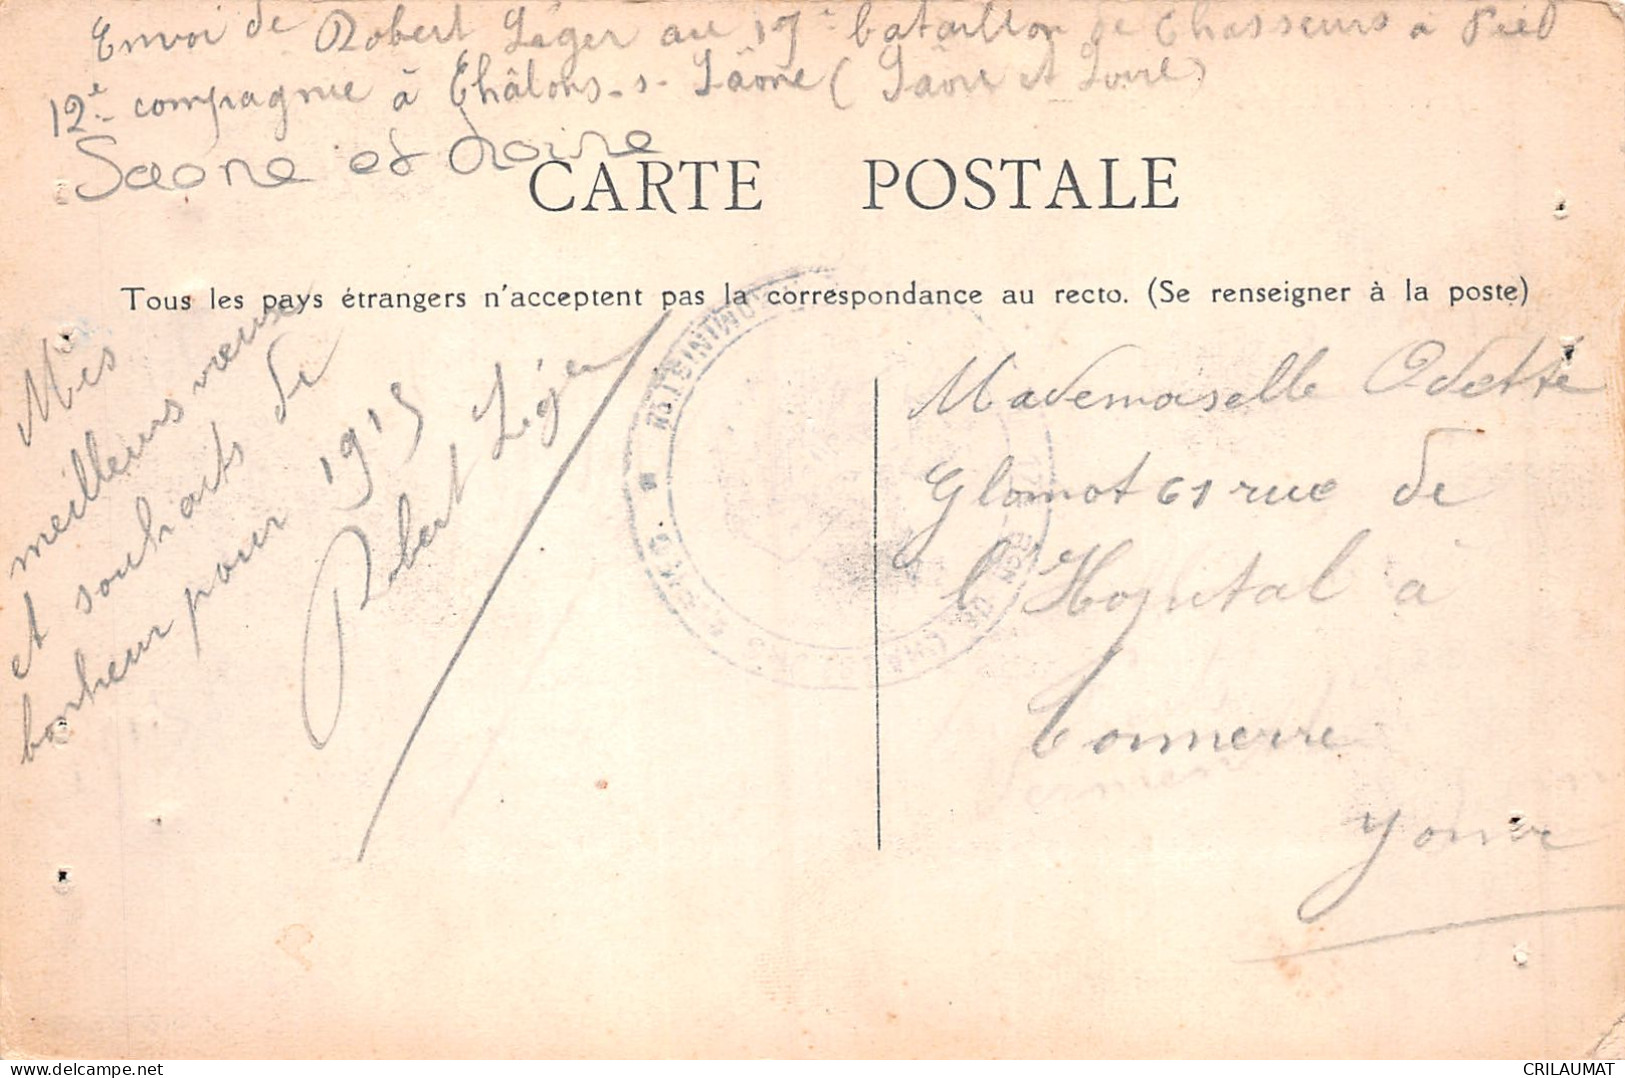 Envoi de Robert Léger au 19e bataillon de Chasseurs à Pied
12e compagnie à Châlons-s-Saône (Saône et Loire)
Saone et Loire
CARTE POSTALE
Tous les pays étrangers n'acceptent pas la correspondance au recto. (Se renseigner à la poste)
Mes
meilleurs vœux
et souhaits de
bonheur pour 1915
Robert Léger
Mademoiselle Odette
Glomot 61 rue de
l'Hopital à
Tonnerre
Yonne
CRILAUMAT